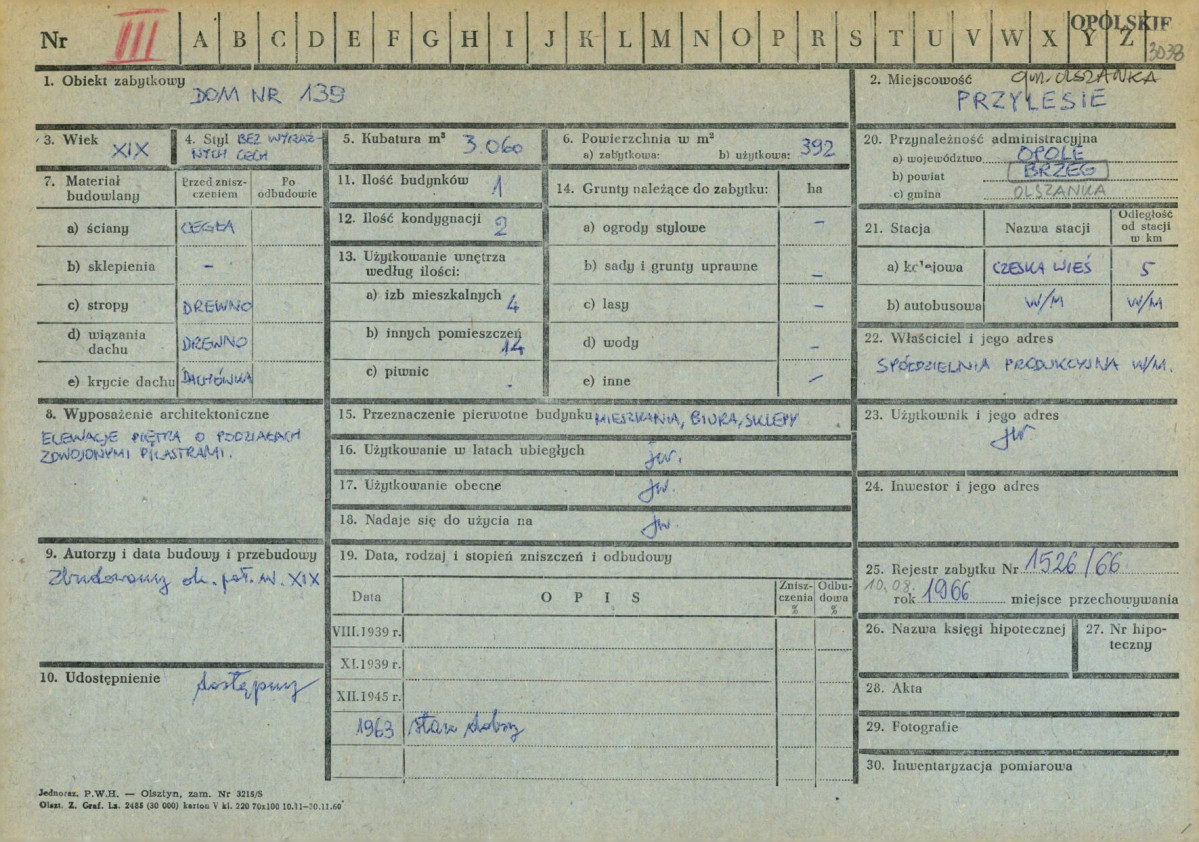 Nr III A B C D E F G H I J K L M N O P R S T U V W X Y Z
OPOLSKIE
3038
1. Obiekt zabytkowy DOM NR 139
2. Miejscowość gm. OLSZANKA
PRZYLESIE
3. Wiek XIX
4. Styl BEZ WYRAŹ-
NYCH CECH
5. Kubatura m³ 3.060
6. Powierzchnia w m²
a) zabytkowa: b) użytkowa: 392
7. Materiał budowlany
Przed znisz-
czeniem
Po
odbudowie
a) ściany CEGŁA
b) sklepienia –
c) stropy DREWNO
d) wiązania
dachu DREWNO
e) krycie dachu DACHÓWKA
8. Wyposażenie architektoniczne
ELEWACJE PIĘTRA O PODZIAŁACH
ZDWOJONYMI PILASTRAMI.
9. Autorzy i data budowy i przebudowy
Zbudowany ok. poł. w. XIX
10. Udostępnienie dostępny
11. Ilość budynków 1
12. Ilość kondygnacji 2
13. Użytkowanie wnętrza
według ilości:
a) izb mieszkalnych 4
b) innych pomieszczeń 14
c) piwnic -
14. Grunty należące do zabytku: ha
a) ogrody stylowe –
b) sady i grunty uprawne –
c) lasy –
d) wody –
e) inne –
15. Przeznaczenie pierwotne budynku MIESZKANIA, BIURA, SKLEPY
16. Użytkowanie w latach ubiegłych jw.
17. Użytkowanie obecne jw.
18. Nadaje się do użycia na jw.
19. Data, rodzaj i stopień zniszczeń i odbudowy
Data OPIS
Znisz-
czenia
%
Odbu-
dowa
%
VIII.1939 r.
XI.1939 r.
XII.1945 r.
1963 stan dobry
20. Przynależność administracyjna
a) województwo OPOLE
b) powiat BRZEG
c) gmina OLSZANKA
21. Stacja Nazwa stacji
Odległość
od stacji
w km
a) kolejowa CZESKA WIEŚ 5
b) autobusowa W/M W/M
22. Właściciel i jego adres
SPÓŁDZIELNIA PRODUKCYJNA W/M.
23. Użytkownik i jego adres
jw
24. Inwestor i jego adres
25. Rejestr zabytku Nr 1526/66
10.08.
rok 1966 miejsce przechowywania
26. Nazwa księgi hipotecznej
27. Nr hipo-
teczny
28. Akta
29. Fotografie
30. Inwentaryzacja pomiarowa
Jednoraz. P.W.H. — Olsztyn, zam. Nr 3218/S
Olszt. Z. Graf. Lz. 2488 (30 000) karton V kl. 220 70x100 10.11–30.11.60